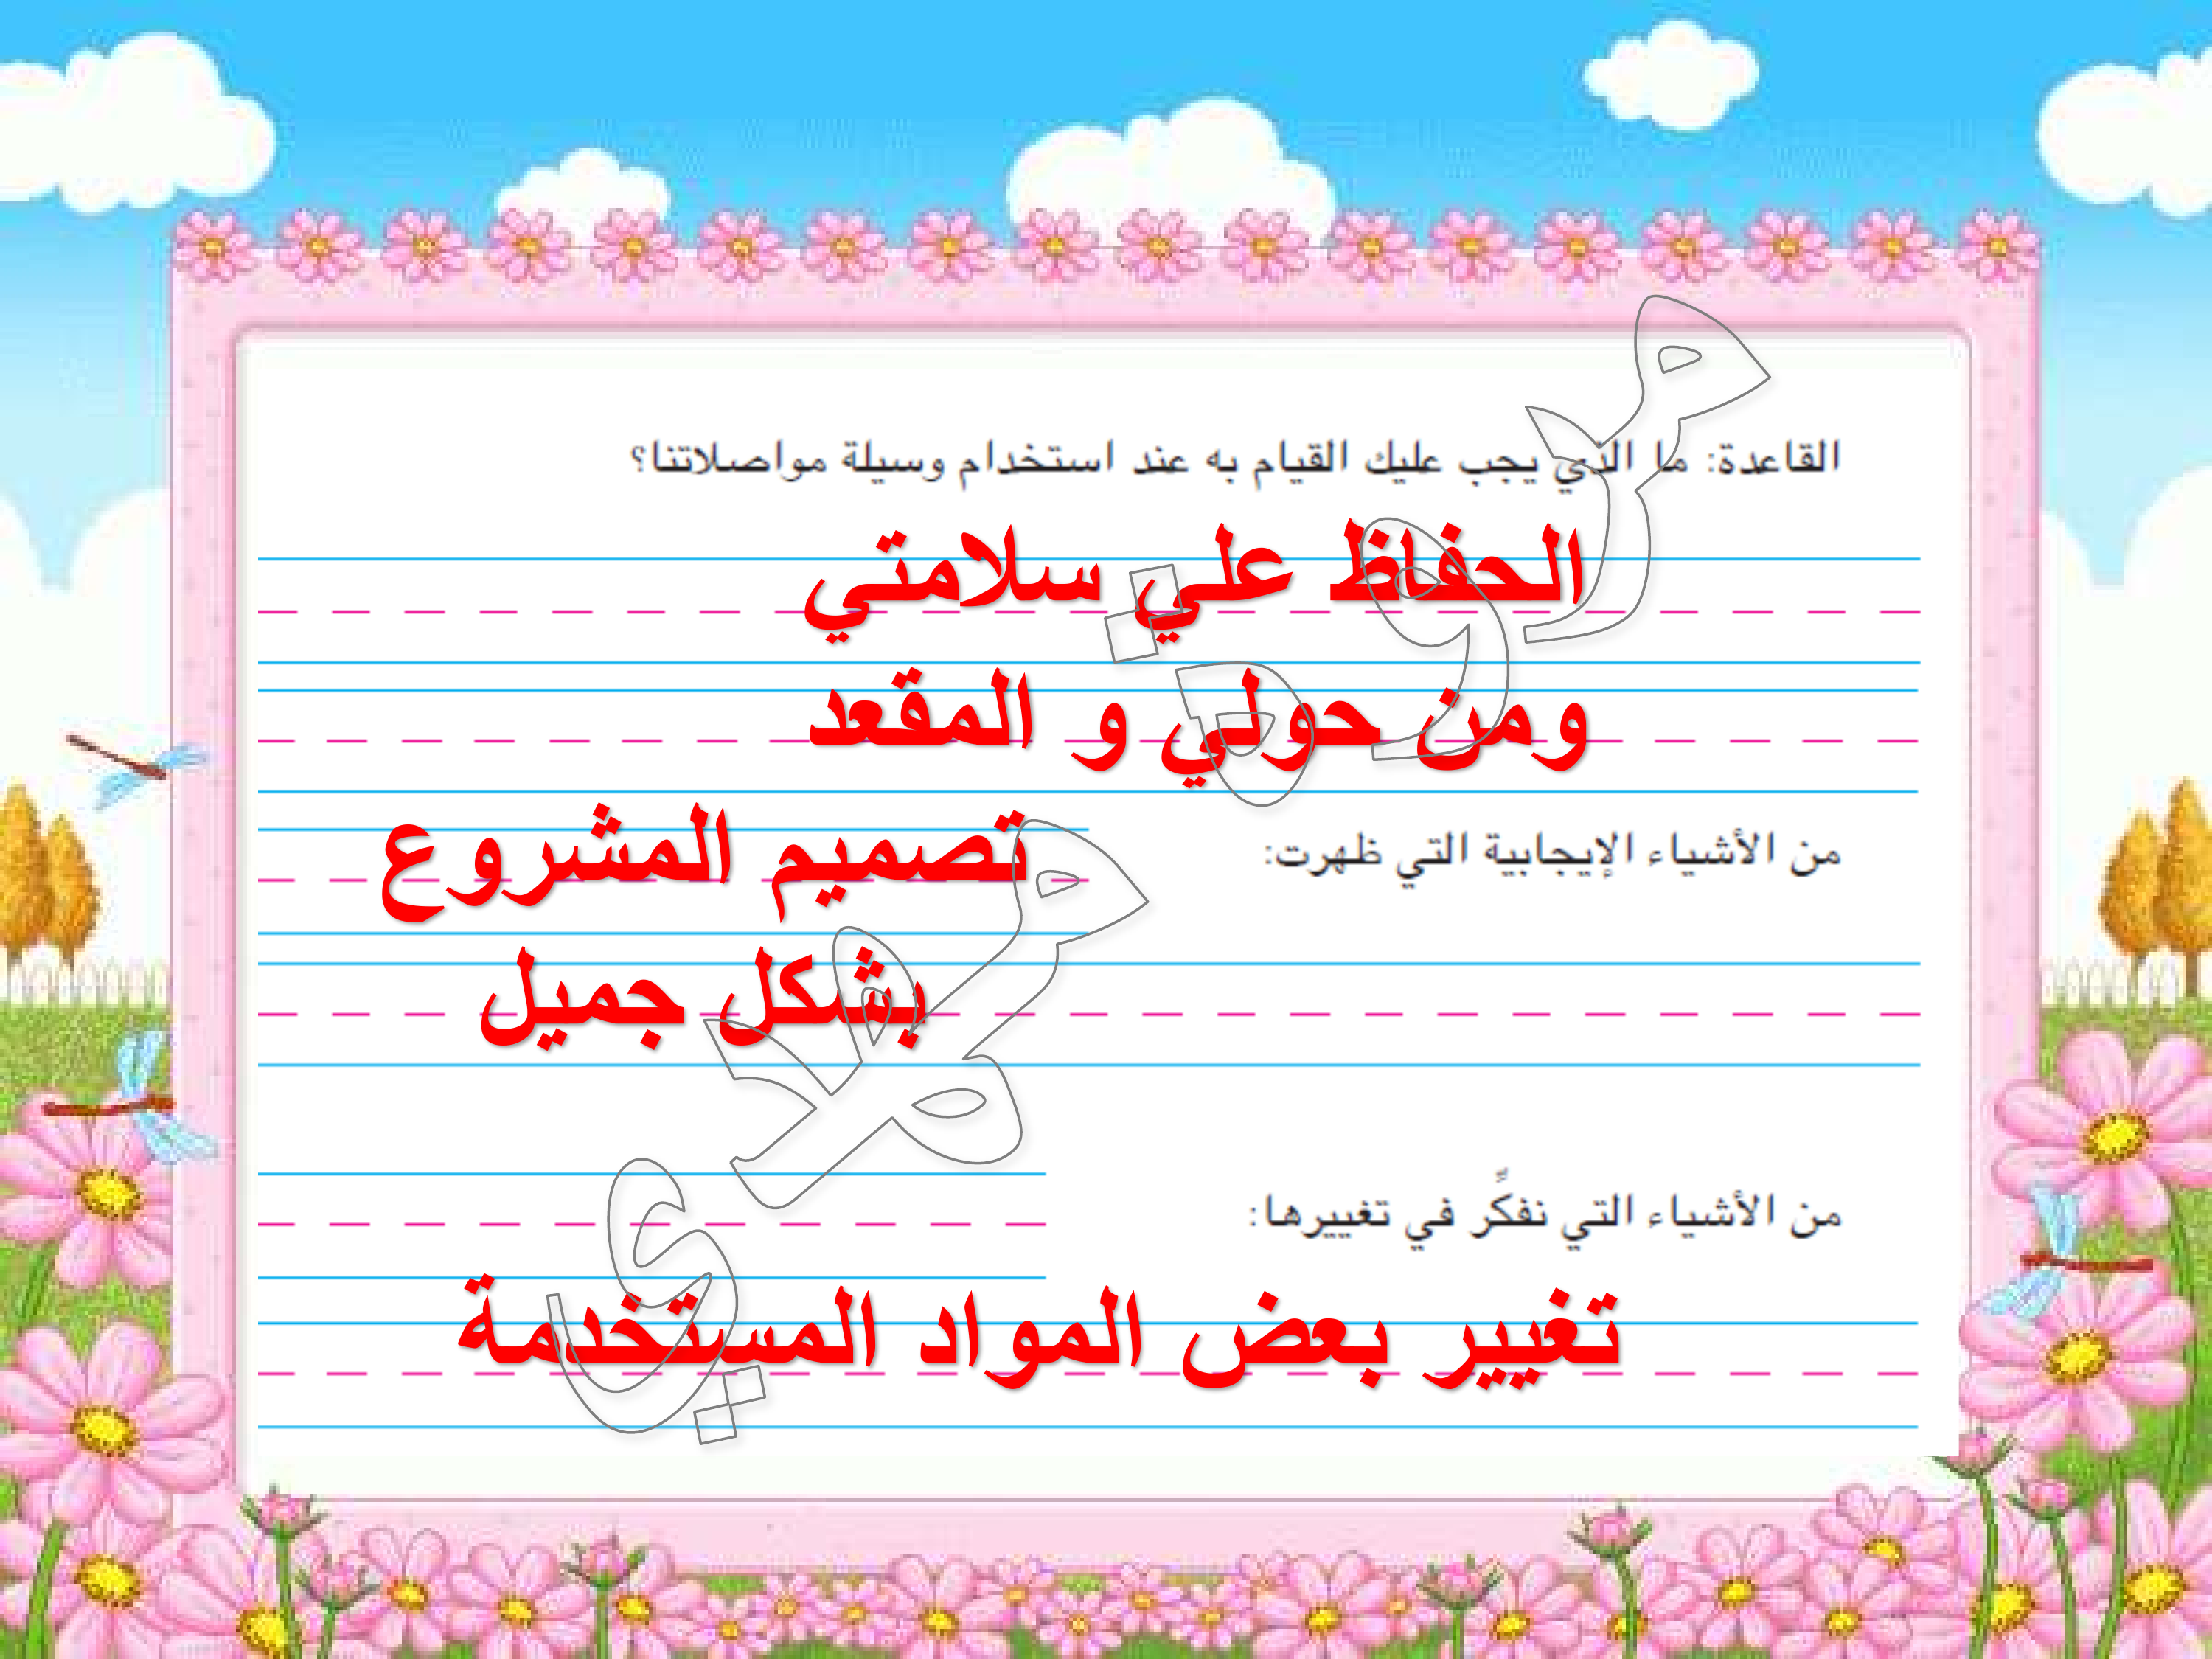 القاعدة: ما الذي يجب عليك القيام به عند استخدام وسيلة مواصلاتنا؟
الحفاظ علي سلامتي
ومن حولي و المقعد
من الأشياء الإيجابية التي ظهرت:
تصميم المشروع
بشكل جميل
من الأشياء التي نفكِّر في تغييرها:
تغيير بعض المواد المستخدمة
مروة مهدي